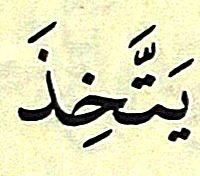 يَتَّخِذَ